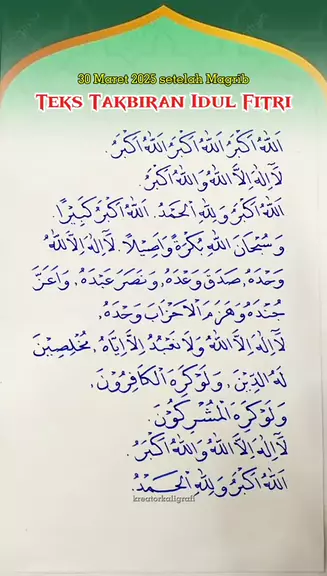 30 Maret 2025 setelah Magrib
TEKS TAKBIRAN IDUL FITRI
اَللّٰهُ اَكْبَرُ اَللّٰهُ اَكْبَرُ اَللّٰهُ اَكْبَرُ.
لَآ اِلٰهَ اِلَّا اللّٰهُ وَاللّٰهُ اَكْبَرُ.
اَللّٰهُ اَكْبَرُ وَلِلّٰهِ الْحَمْدُ. اَللّٰهُ اَكْبَرُ كَبِيْرًا.
وَسُبْحَانَ اللّٰهِ بُكْرَةً وَاَصِيْلًا. لَآ اِلٰهَ اِلَّا اللّٰهُ
وَحْدَهُ, صَدَقَ وَعْدَهُ, وَنَصَرَ عَبْدَهُ, وَاَعَزَّ
جُنْدَهُ وَهَزَمَ الْاَحْزَابَ وَحْدَهُ,
لَآ اِلٰهَ اِلَّا اللّٰهُ وَلَا نَعْبُدُ اِلَّا اِيَّاهُ, مُخْلِصِيْنَ
لَهُ الدِّيْنَ, وَلَوْ كَرِهَ الْكَافِرُوْنَ,
وَلَوْ كَرِهَ الْمُشْرِكُوْنَ.
لَآ اِلٰهَ اِلَّا اللّٰهُ وَاللّٰهُ اَكْبَرُ.
اَللّٰهُ اَكْبَرُ وَلِلّٰهِ الْحَمْدُ.
kreatorkaligrafi